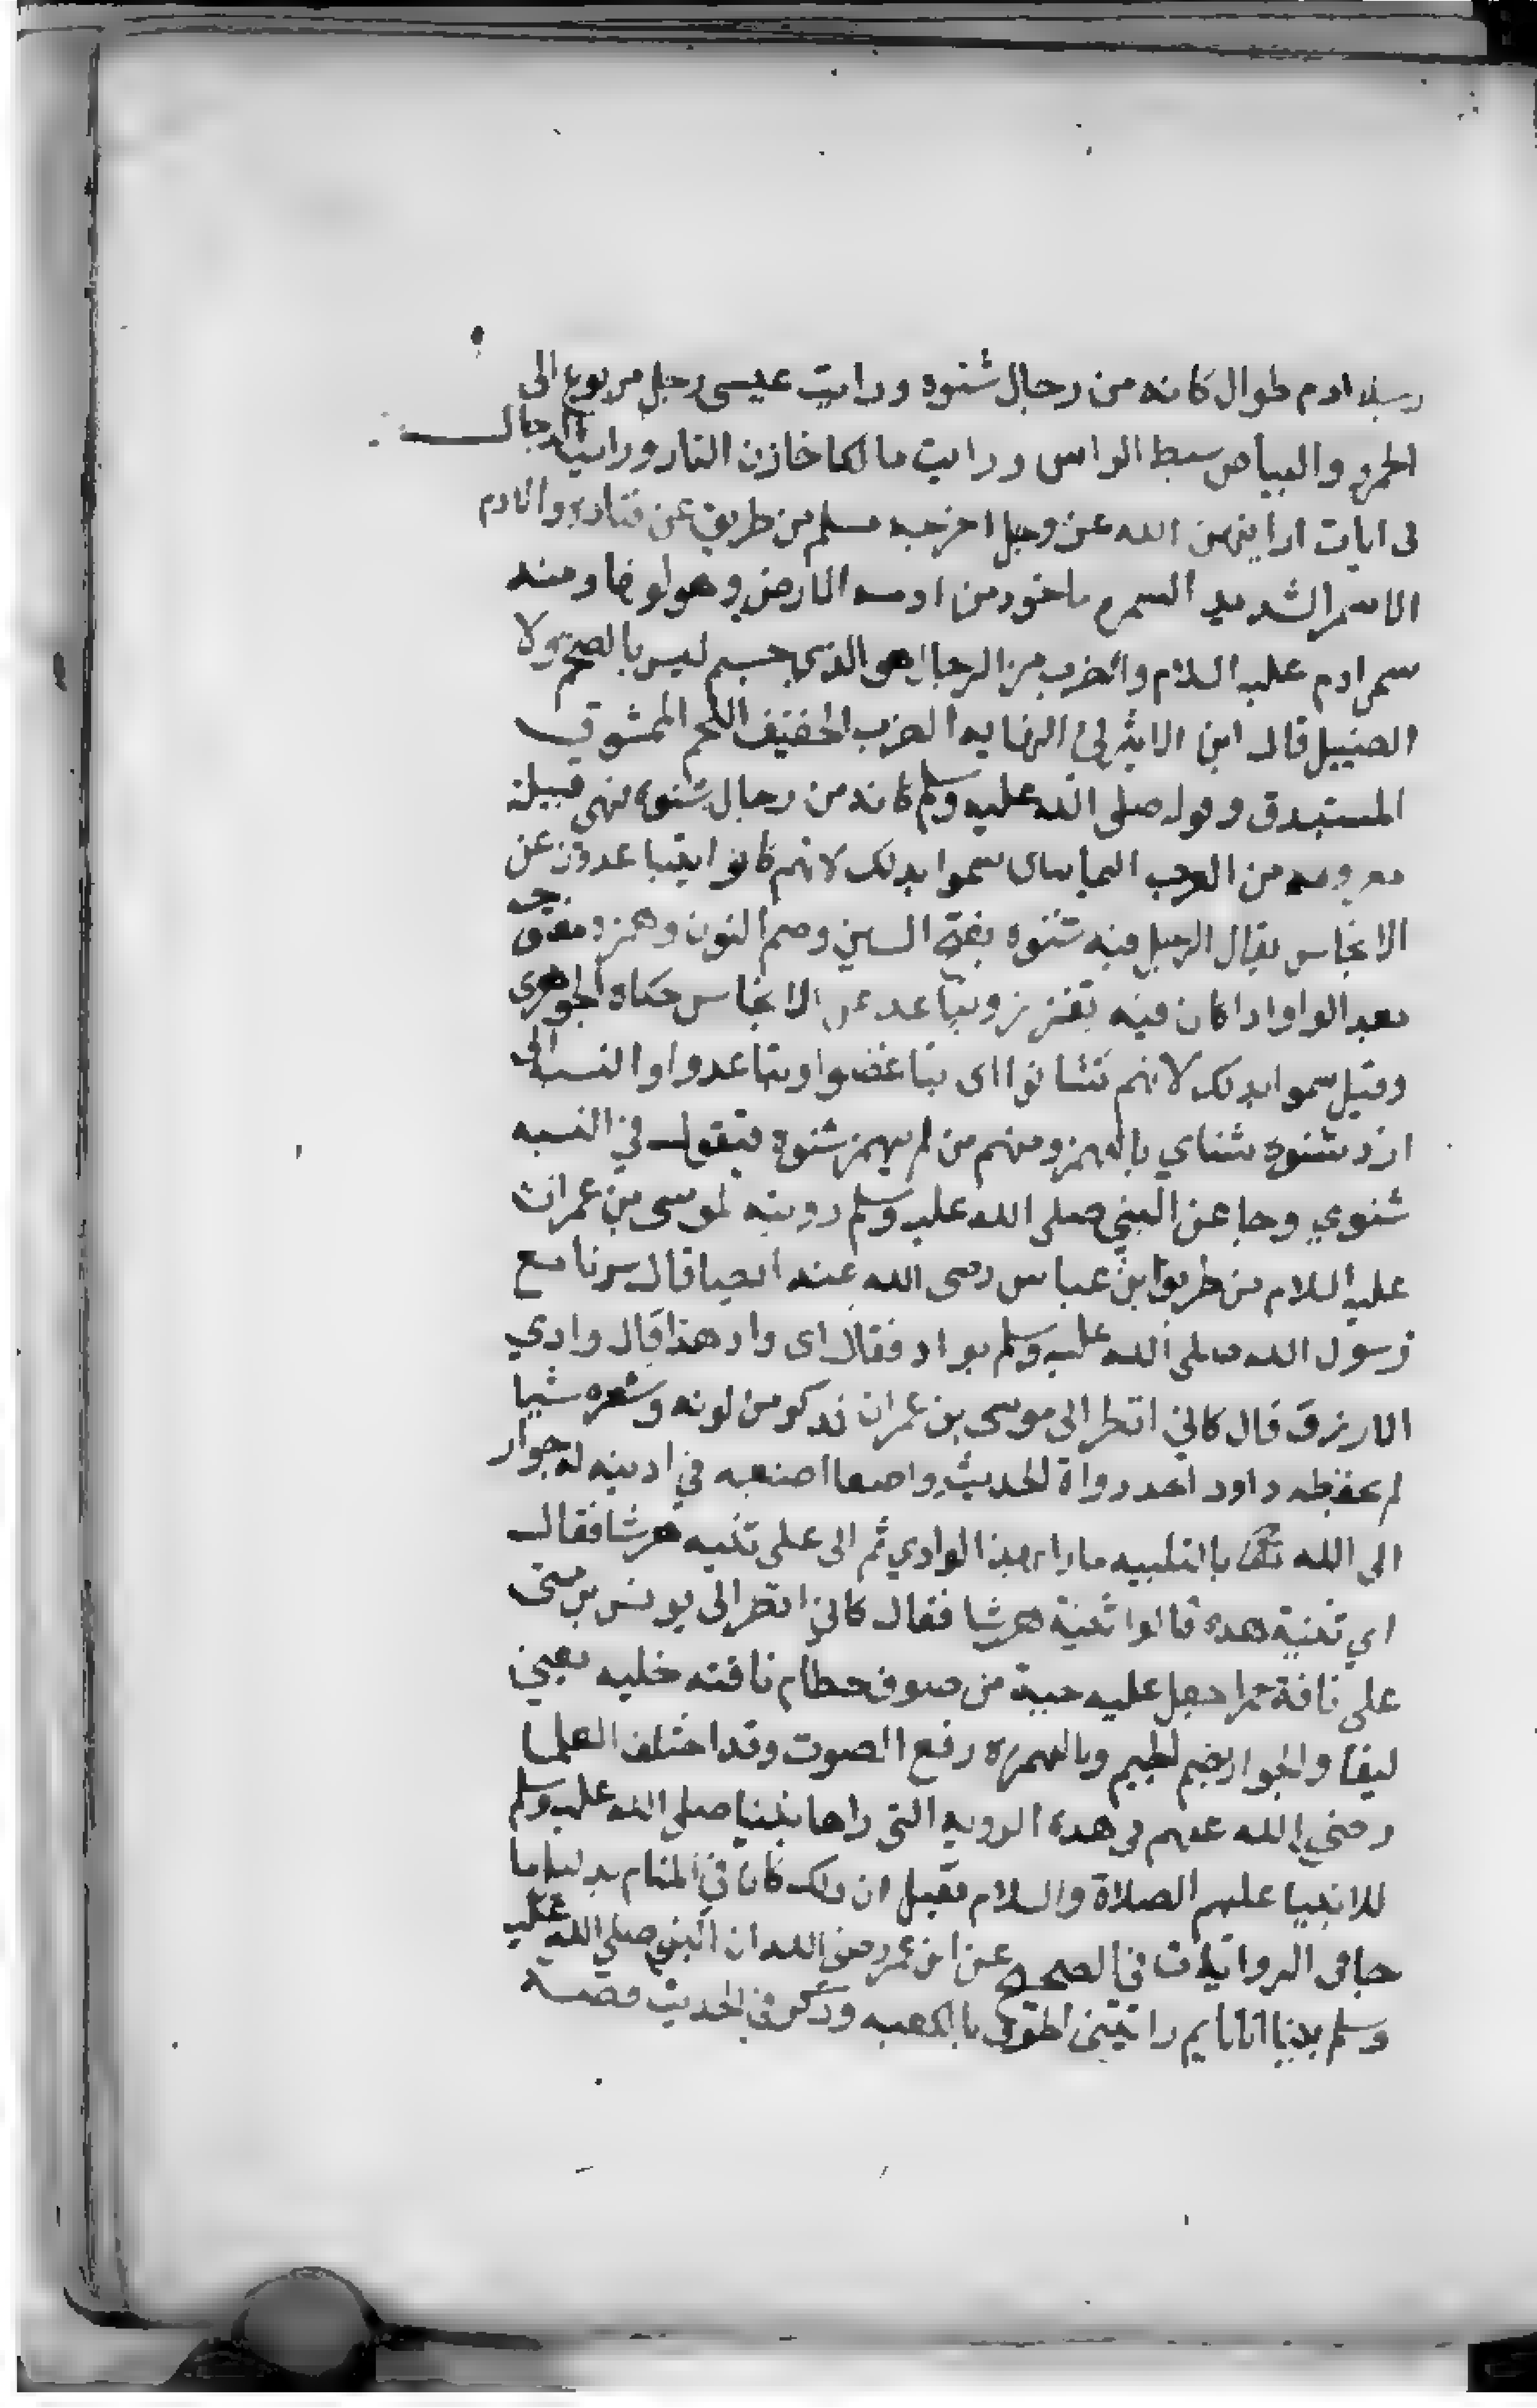 رجلا ادم طوال كانه من رجال شنوه ورايت عيسى رجل مربوع الى
الحمره والبياض سبط الراس ورايت مالكا خازن النار ورايت الدجال
فى ايات اراينهن الله عز وجل اخرجه مسلم من طريق عن قتاده والادم
الاسمر الشديد السمره ماخود من ادمه الارض وهو لونها ومنه
سمى ادم عليه السلام والضرب من الرجال هو الذى جسم ليس بالضخم ولا
الضييل قال ابن الاثير فى النهايه الضرب الخفيف اللحم الممشوق
المستدق وقوله صلى الله عليه وسلم كانه من رجال شنوه فهى قبيلة
معروفه من العرب سموا بدلك لانهم كانوا يتباعدون عن
الانجاس يقال الرجل فيه شنوه بفتح السين وضم النون وهمزه مفتوحه
بعد الواو ادا كان فيه تقزز وتباعد عن الانجاس حكاه الجوهرى
وقيل سموا بدلك لانهم تشانوا اى تباغضوا وتباعدوا والنسبه الى
ازد شنوه شناي بالهمز ومنهم من لم يهمز شنوه فيقول في النسبه
شنوي وجا عن النبي صلى الله عليه وسلم رويته لموسى بن عمران
عليه السلام من طريق ابن عباس رضى الله عنه ايضا قال سرنا مع
رسول الله صلى الله عليه وسلم بواد فقال اى واد هذا قال وادي
الازرق قال كاني انظر الى موسى بن عمران فدكر من لونه وشعره شيا
لم يحفظه داود احد رواة الحديث واضعا اصبعه في ادنيه له جوار
الى الله تعالى بالتلبيه مارا بهذا الوادي ثم اتى على ثنيه هرشا فقال
اي ثنية هده قالوا ثنية هرشا فقال كاني انظر الى يونس بن متى
على ناقة حمرا جعل عليه جبة من صوف خطام ناقته خلبه يعني
ليفا والجوار بضم الجيم وبالهمزه رفع الصوت وقد اختلف العلما
رضي الله عنهم فى هده الرويه التى راها نبينا صلى الله عليه وسلم
للانبيا عليهم الصلاة والسلام فقيل ان دلك كان في المنام بدليل ما
جا فى الروايات في الصحيح عن ابن عمر رضى الله ان النبي صلى الله عليه
وسلم بينا انا نايم رايتنى اطوف بالكعبه ودكر في الحديث قصة